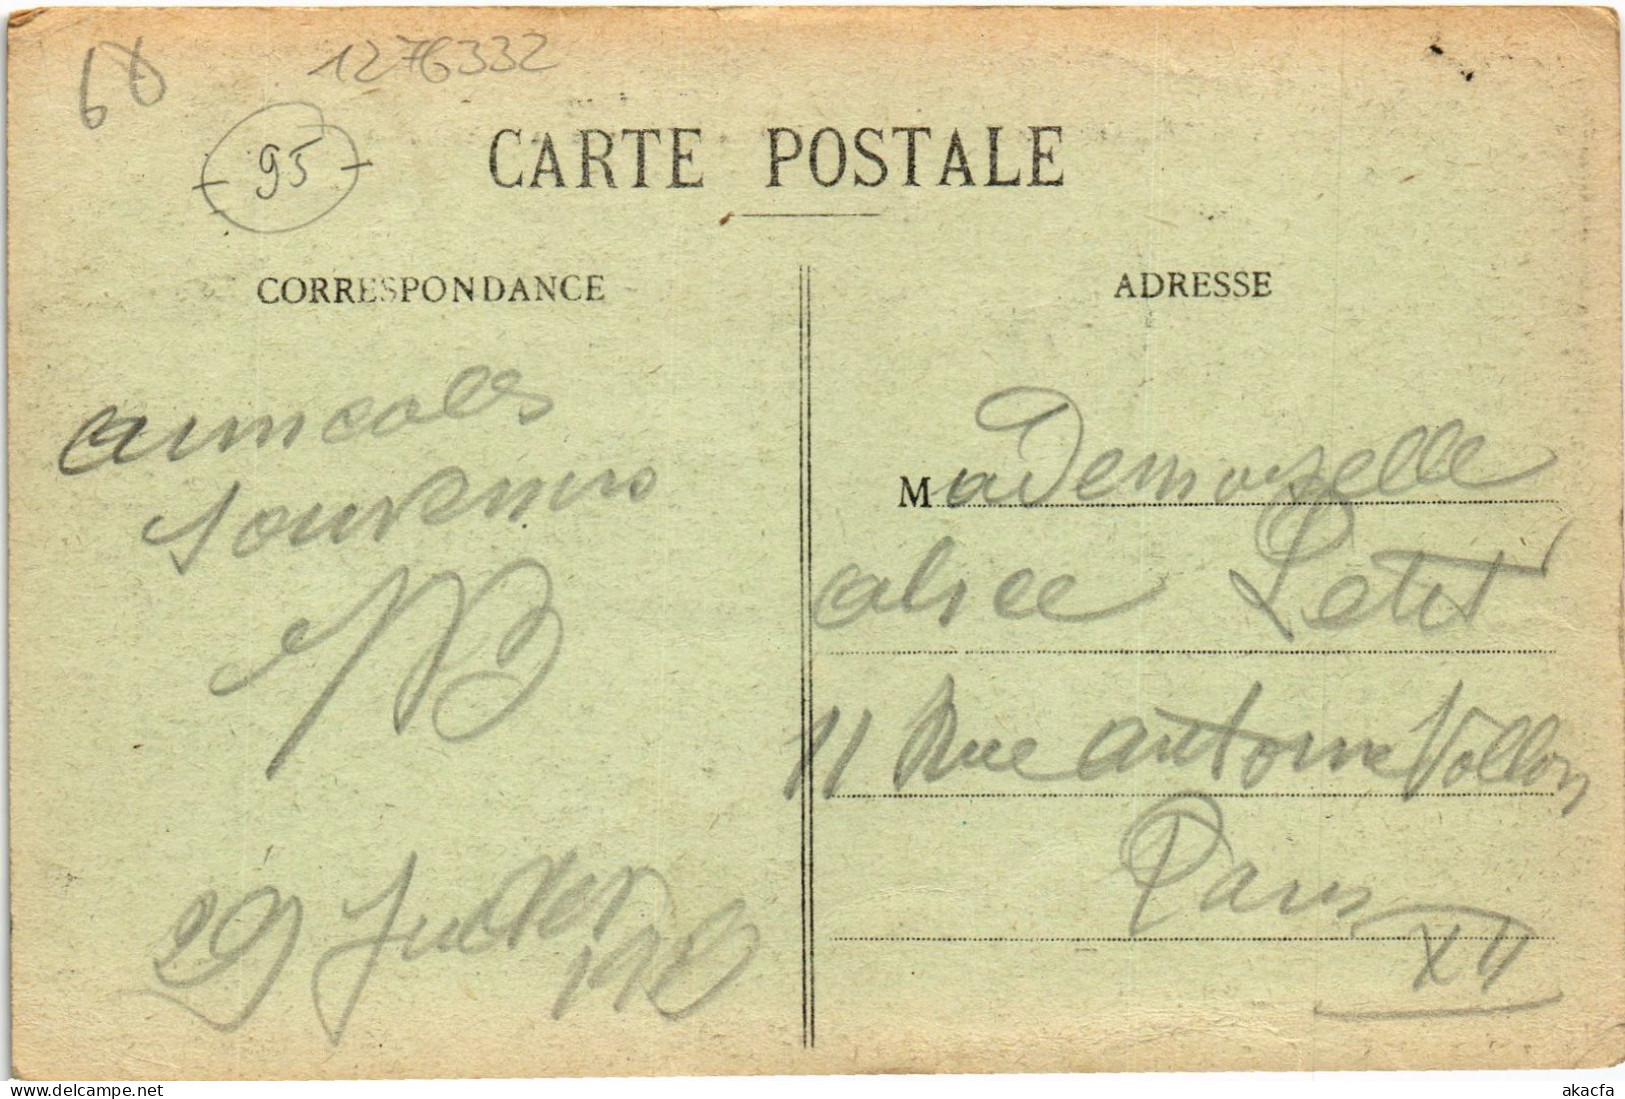 60
1276332
95
CARTE POSTALE
CORRESPONDANCE
ADRESSE
amicales
souvenirs
Mademoiselle
alice Petit
11 Rue Antoine Vollon
Paris
29 Juillet
www.delcampe.net
akacfa